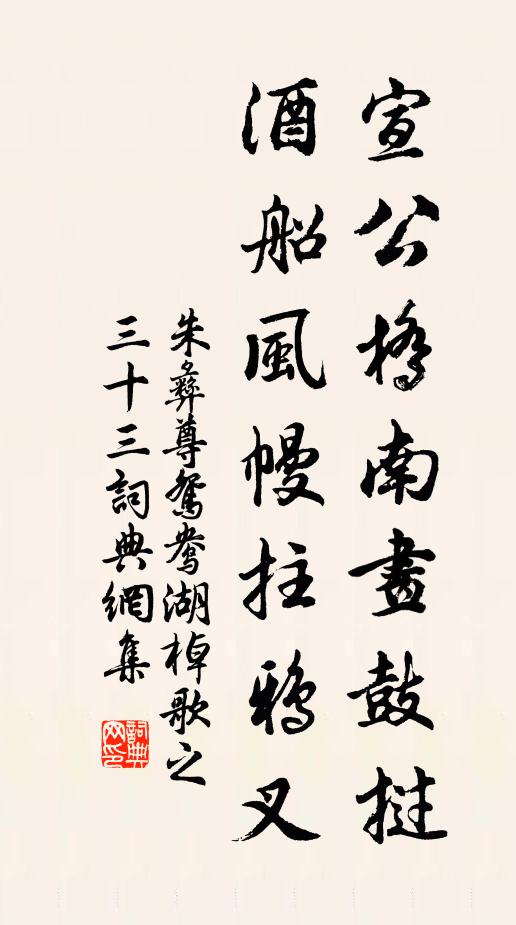 宣公橋南畫鼓撾
酒船風幔拄鴉叉
朱彝尊鴛鴦湖棹歌之
三十三詞典網集
詞典
网印